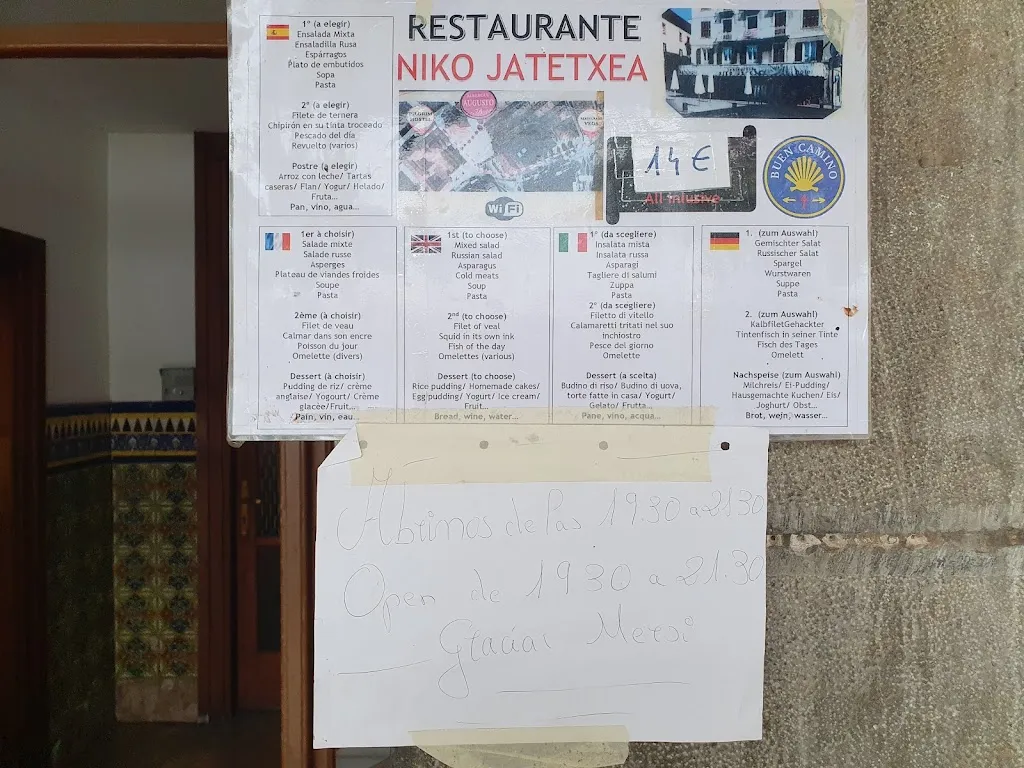 RESTAURANTE
NIKO JATETXEA
1º (a elegir)
Ensalada Mixta
Ensaladilla Rusa
Espárragos
Plato de embutidos
Sopa
Pasta
2º (a elegir)
Filete de ternera
Chipirón en su tinta troceado
Pescado del día
Revuelto (varios)
Postre (a elegir)
Arroz con leche/ Tartas
caseras/ Flan/ Yogur/ Helado/
Fruta...
Pan, vino, agua...
AUGUSTO
WiFi
14 €
All inlusive
BUEN CAMINO
1er à choisir)
Salade mixte
Salade russe
Asperges
Plateau de viandes froides
Soupe
Pasta
2ème (à choisir)
Filet de veau
Calmar dans son encre
Poisson du jour
Omelette (divers)
Dessert (à choisir)
Pudding de riz/ crème
anglaise/ Yogourt/ Crème
glacée/Fruit...
Pain, vin, eau...
1st (to choose)
Mixed salad
Russian salad
Asparagus
Cold meats
Soup
Pasta
2nd (to choose)
Filet of veal
Squid in its own ink
Fish of the day
Omelettes (various)
Dessert (to choose)
Rice pudding/ Homemade cakes/
Egg pudding/ Yogurt/ Ice cream/
Fruit...
Bread, wine, water...
1º (da scegliere)
Insalata mista
Insalata russa
Asparagi
Tagliere di salumi
Zuppa
Pasta
2º (da scegliere)
Filetto di vitello
Calamaretti tritati nel suo
inchiostro
Pesce del giorno
Omelette
Dessert (a scelta)
Budino di riso/ Budino di uova,
torte fatte in casa/ Yogurt/
Gelato/ Frutta...
Pane, vino, acqua...
1. (zum Auswahl)
Gemischter Salat
Russischer Salat
Spargel
Wurstwaren
Suppe
Pasta
2. (zum Auswahl)
KalbfiletGehackter
Tintenfisch in seiner Tinte
Fisch des Tages
Omelett
Nachspeise (zum Auswahl)
Milchreis/ Ei-Pudding/
Hausgemachte Kuchen/ Eis/
Joghurt/ Obst...
Brot, wejn, wasser...
Abrimos de las 19.30 a 21.30
Open de 19 30 a 21.30
Gracias Mersi